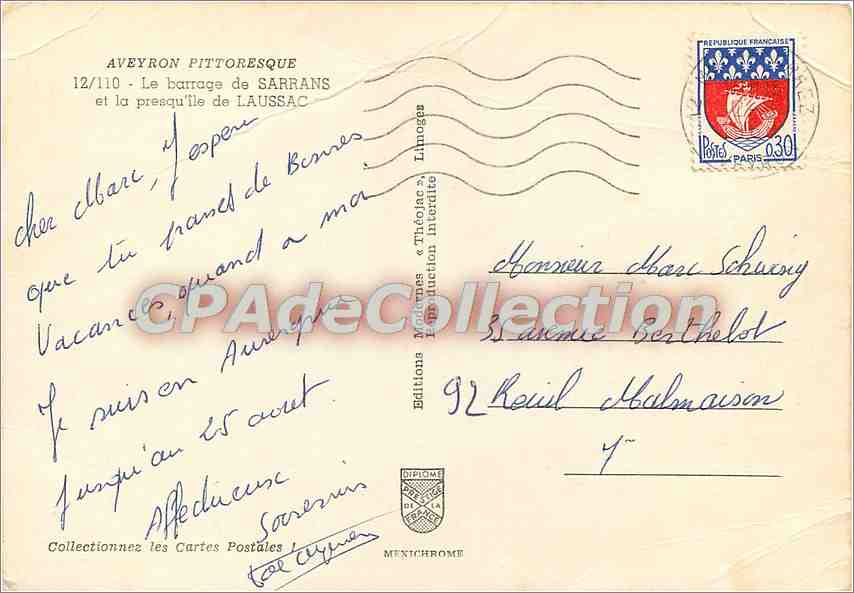 AVEYRON PITTORESQUE
12/110 - Le barrage de SARRANS
et la presqu'île de LAUSSAC
Cher Marc, J'espère
que tu passes de Bonnes
Vacances, quand a moi
Je suis en Auvergne
Jusqu'au 25 aout.
Affectueux
Souvenirs
Collectionnez les Cartes Postales !
Editions Modernes « Théojac », Limoges
Reproduction interdite
DIPLOME
PRESTIGE
DE LA
FRANCE
MEXICHROME
REPUBLIQUE FRANÇAISE
POSTES
PARIS
0,30
Monsieur Marc Schwing
35 avenue Berthelot
92 Rueil Malmaison
CPAdeCollection